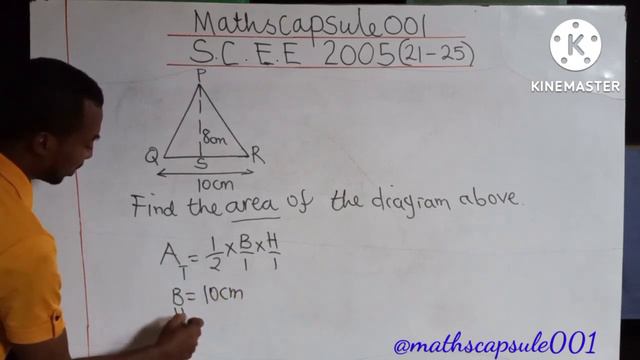 Mathscapsule001
S.C.E.E 2005 (21-25)
KINEMASTER
P
8cm
Q S R
10cm
Find the area of the diagram above.
A_T = 1/2 × B/1 × H/1
B = 10cm
H
@mathscapsule001